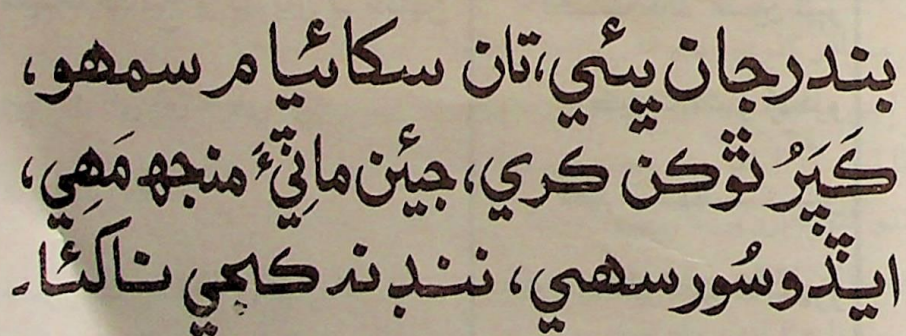 بندر جان ڀئي، تان سکاڻيا م سمهو،
ڪَپَرُ ٿو ڪن ڪري، جيئن ماٽِيءَ منجهه مَهِي،
ايڏو سُور سهي، ننڊ نہ ڪجي ناکئا۔